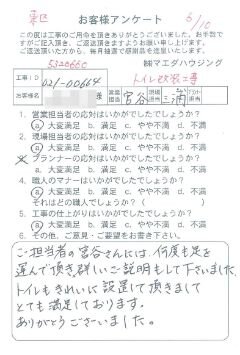 お客様アンケート 5/10
この度は工事のご用命を頂きありがとうございました。お手数で
すがご記入頂き、ご返送頂きますようお願い申し上げます。
ご返送頂いた方から、毎月抽選で感謝品を送呈いたします。
5320660 ㈱マエダハウジング
工事ID 021-00664 トイレ改装工事
お客様名 様 営業担当 宮谷 現場担当 三浦
1. 営業担当者の応対はいかがでしたでしょうか?
ⓐ 大変満足 b. 満足 c. やや不満 d. 不満
2. 現場担当者の応対はいかがでしたでしょうか?
ⓐ 大変満足 b. 満足 c. やや不満 d. 不満
3. プランナーの応対はいかがでしたでしょうか?
a. 大変満足 b. 満足 c. やや不満 d. 不満
4. 職人のマナーはいかがでしたでしょうか?
ⓐ 大変満足 b. 満足 c. やや不満 d. 不満
それはどの職人でしょうか?( )
5. 工事の仕上がりはいかがでしたでしょうか?
ⓐ 大変満足 b. 満足 c. やや不満 d. 不満
6. その他、ご意見・ご要望をお書き下さい。
ご担当者の宮谷さんには、何度も足を
運んで頂き、詳しいご説明もして下さいました。
トイレもきれいに設置して頂きまして
とても満足しております。
ありがとうございました。